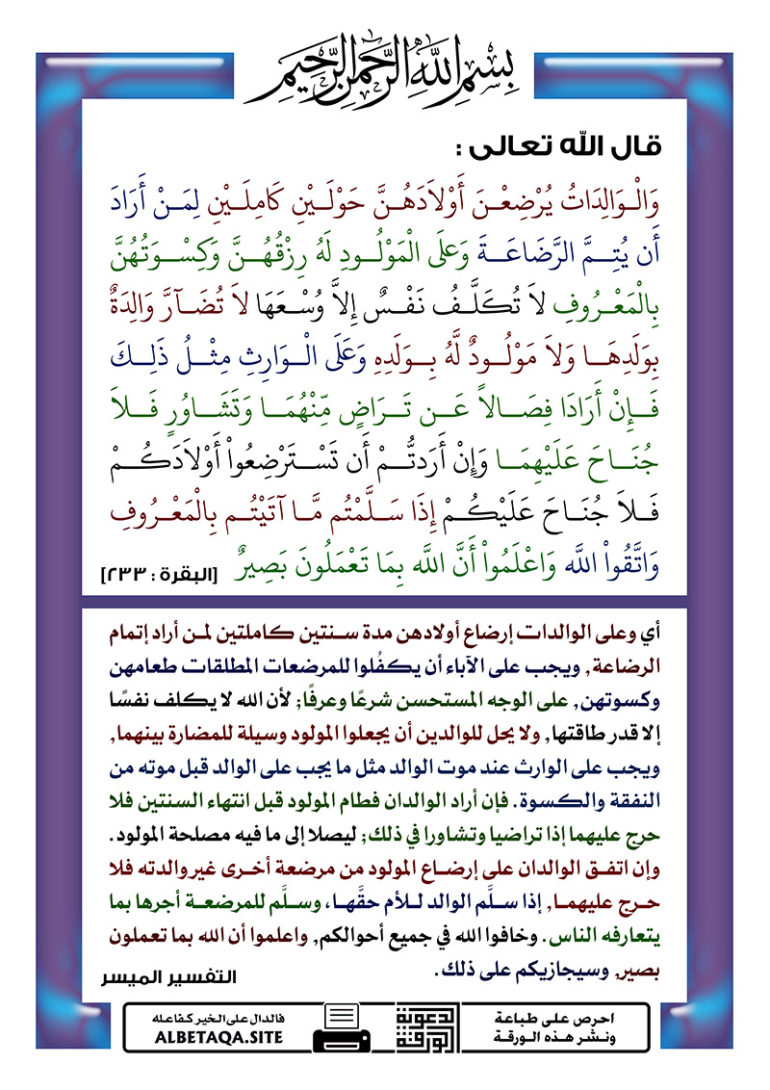 بِسْمِ اللَّهِ الرَّحْمَنِ الرَّحِيمِ
قال الله تعالى :
وَالْوَالِدَاتُ يُرْضِعْنَ أَوْلاَدَهُنَّ حَوْلَيْنِ كَامِلَيْنِ لِمَنْ أَرَادَ
أَن يُتِمَّ الرَّضَاعَةَ وَعلَى الْمَوْلُودِ لَهُ رِزْقُهُنَّ وَكِسْوَتُهُنَّ
بِالْمَعْرُوفِ لاَ تُكَلَّفُ نَفْسٌ إِلاَّ وُسْعَهَا لاَ تُضَآرَّ وَالِدَةٌ
بِوَلَدِهَا وَلاَ مَوْلُودٌ لَّهُ بِوَلَدِهِ وَعَلَى الْوَارِثِ مِثْلُ ذَلِكَ
فَإِنْ أَرَادَا فِصَالاً عَن تَرَاضٍ مِّنْهُمَا وَتَشَاوُرٍ فَلاَ
جُنَاحَ عَلَيْهِمَا وَإِنْ أَرَدتُّمْ أَن تَسْتَرْضِعُواْ أَوْلاَدَكُمْ
فَلاَ جُنَاحَ عَلَيْكُمْ إِذَا سَلَّمْتُم مَّا آتَيْتُم بِالْمَعْرُوفِ
وَاتَّقُواْ اللَّه وَاعْلَمُواْ أَنَّ اللَّه بِمَا تَعْمَلُونَ بَصِيرٌ [البقرة : ٢٣٣]
أي وعلى الوالدات إرضاع أولادهن مدة سنتين كاملتين لمن أراد إتمام
الرضاعة, ويجب على الآباء أن يكفُلوا للمرضعات المطلقات طعامهن
وكسوتهن, على الوجه المستحسن شرعًا وعرفًا; لأن الله لا يكلف نفسًا
إلا قدر طاقتها, ولا يحل للوالدين أن يجعلوا المولود وسيلة للمضارة بينهما,
ويجب على الوارث عند موت الوالد مثل ما يجب على الوالد قبل موته من
النفقة والكسوة. فإن أراد الوالدان فطام المولود قبل انتهاء السنتين فلا
حرج عليهما إذا تراضيا وتشاورا في ذلك; ليصلا إلى ما فيه مصلحة المولود.
وإن اتفق الوالدان على إرضاع المولود من مرضعة أخرى غير والدته فلا
حرج عليهما, إذا سلَّم الوالد للأم حقَّها، وسلَّم للمرضعة أجرها بما
يتعارفه الناس. وخافوا الله في جميع أحوالكم, واعلموا أن الله بما تعملون
بصير, وسيجازيكم على ذلك.
التفسير الميسر
احرص على طباعة
ونشر هذه الورقة
الدعوية
الورقة
فالدال على الخير كفاعله
ALBETAQA.SITE